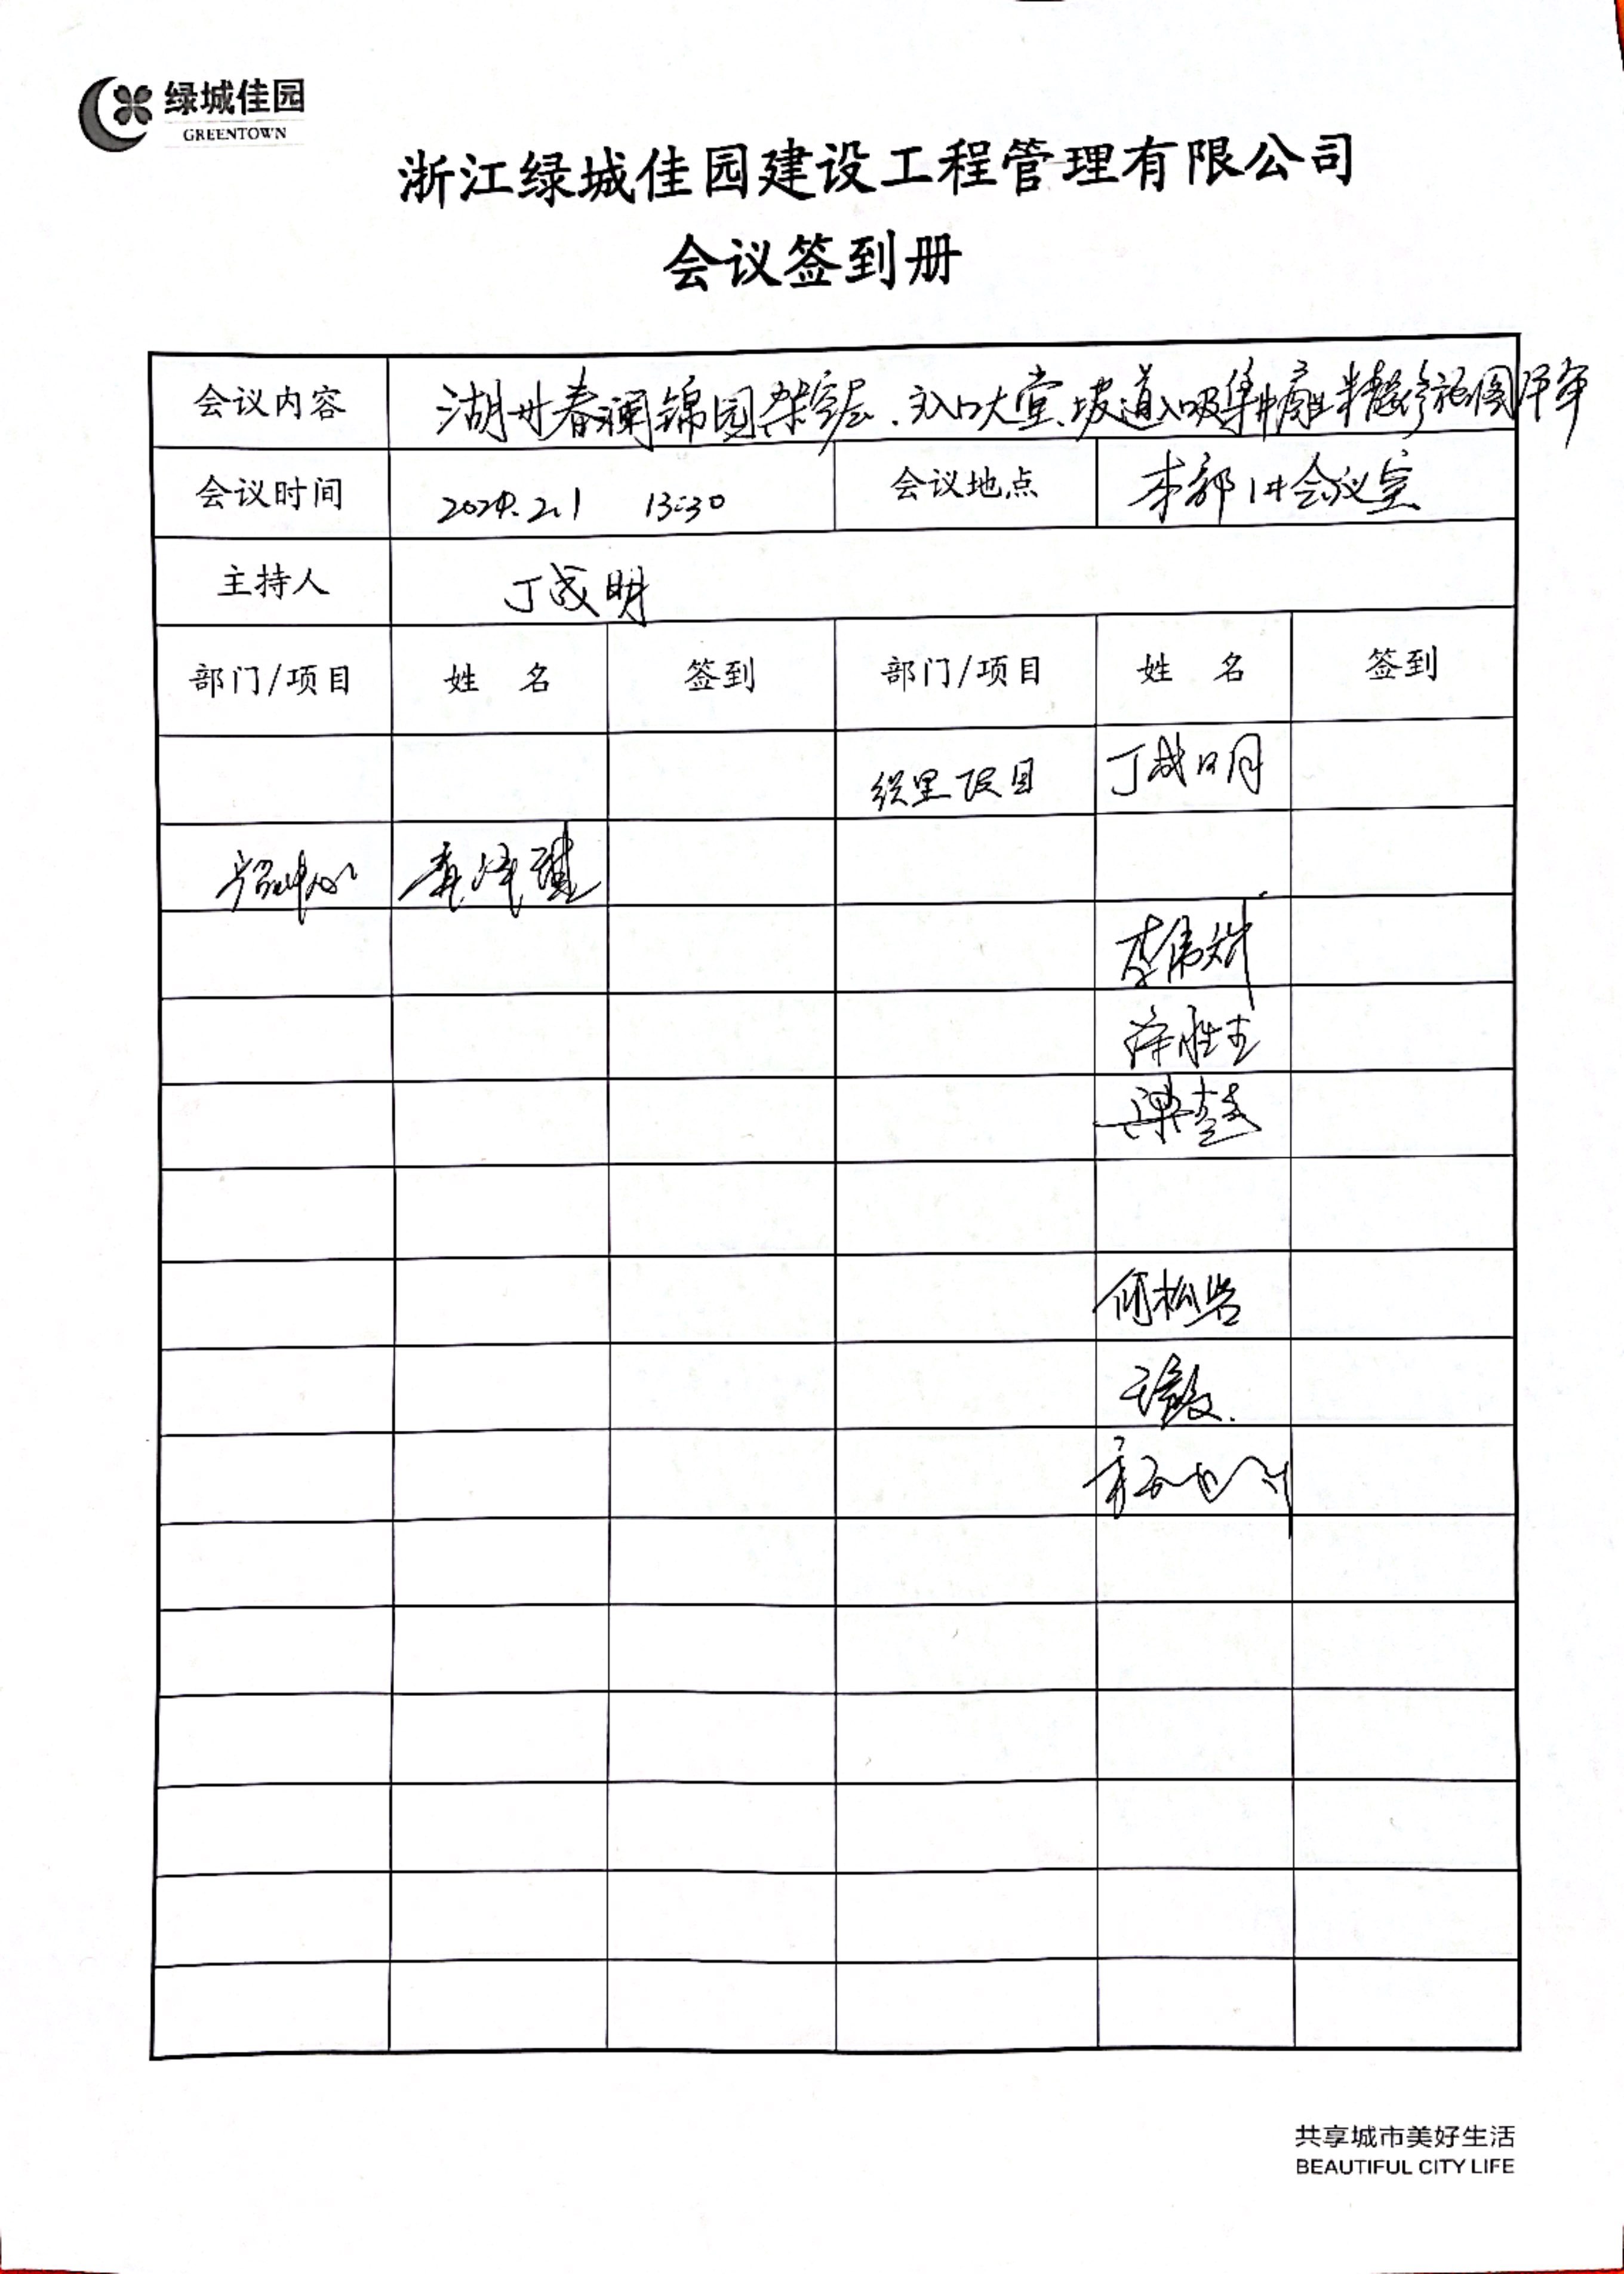 绿城佳园
GREENTOWN
浙江绿城佳园建设工程管理有限公司
会议签到册
会议内容 湖州春澜锦园架空层、主入口大堂、坡道入口及集中商业精装修施工图评审
会议时间 2024.2.1 13:30 会议地点 本部1#会议室
主持人 丁成明
部门/项目 姓名 签到 部门/项目 姓名 签到
织里项目 丁成明
李伟斌
梁
何松岩
共享城市美好生活
BEAUTIFUL CITY LIFE